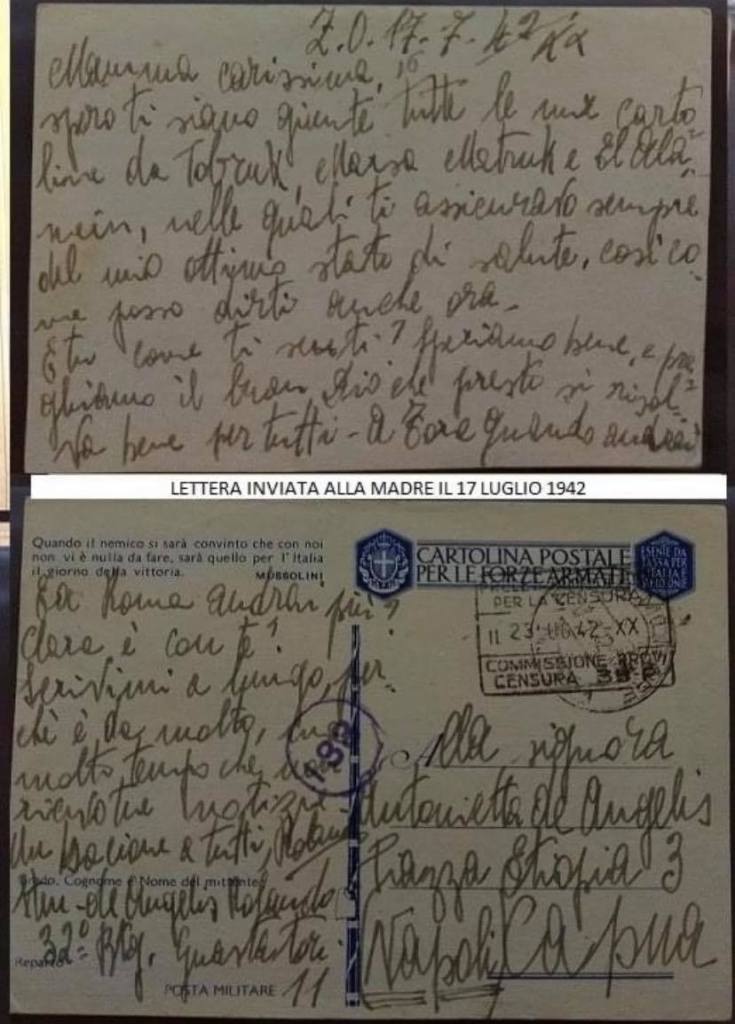 Z.O. 17-7-42
Mamma carissima,
spero ti siano giunte tutte le mie carto
line da Tobruk, Marsa Matruk e El Ala
mein, nelle quali ti assicuravo sempre
del mio ottimo stato di salute, così co
me posso dirti anche ora.
E tu come ti senti? Speriamo bene, e pre
ghiamo il buon Dio che presto si risol
va bene per tutti - A Tora quando andrai?
LETTERA INVIATA ALLA MADRE IL 17 LUGLIO 1942
Quando il nemico si sarà convinto che con noi
non vi è nulla da fare, sarà quello per l'Italia
il giorno della vittoria.
MUSSOLINI
CARTOLINA POSTALE
PER LE FORZE ARMATE
ESENTE DA
TASSA PER
ITALIA
PER LA CENSURA
11 23 LUG 42-XX
COMMISSIONE PROV
CENSURA 39 P
Ed a Roma andrai più?
Clara è con te?
Scrivimi a lungo, per
chè è da molto,
molto tempo che non
ricevo tue notizie.
Un bacione a tutti, Rolando
Grado, Cognome e Nome del mittente
de Angelis Rolando
Reparto 32° Btg. Guastatori
POSTA MILITARE 11
Alla signora
Antonietta de Angelis
Piazza Etiopia 3
(Napoli) Capua